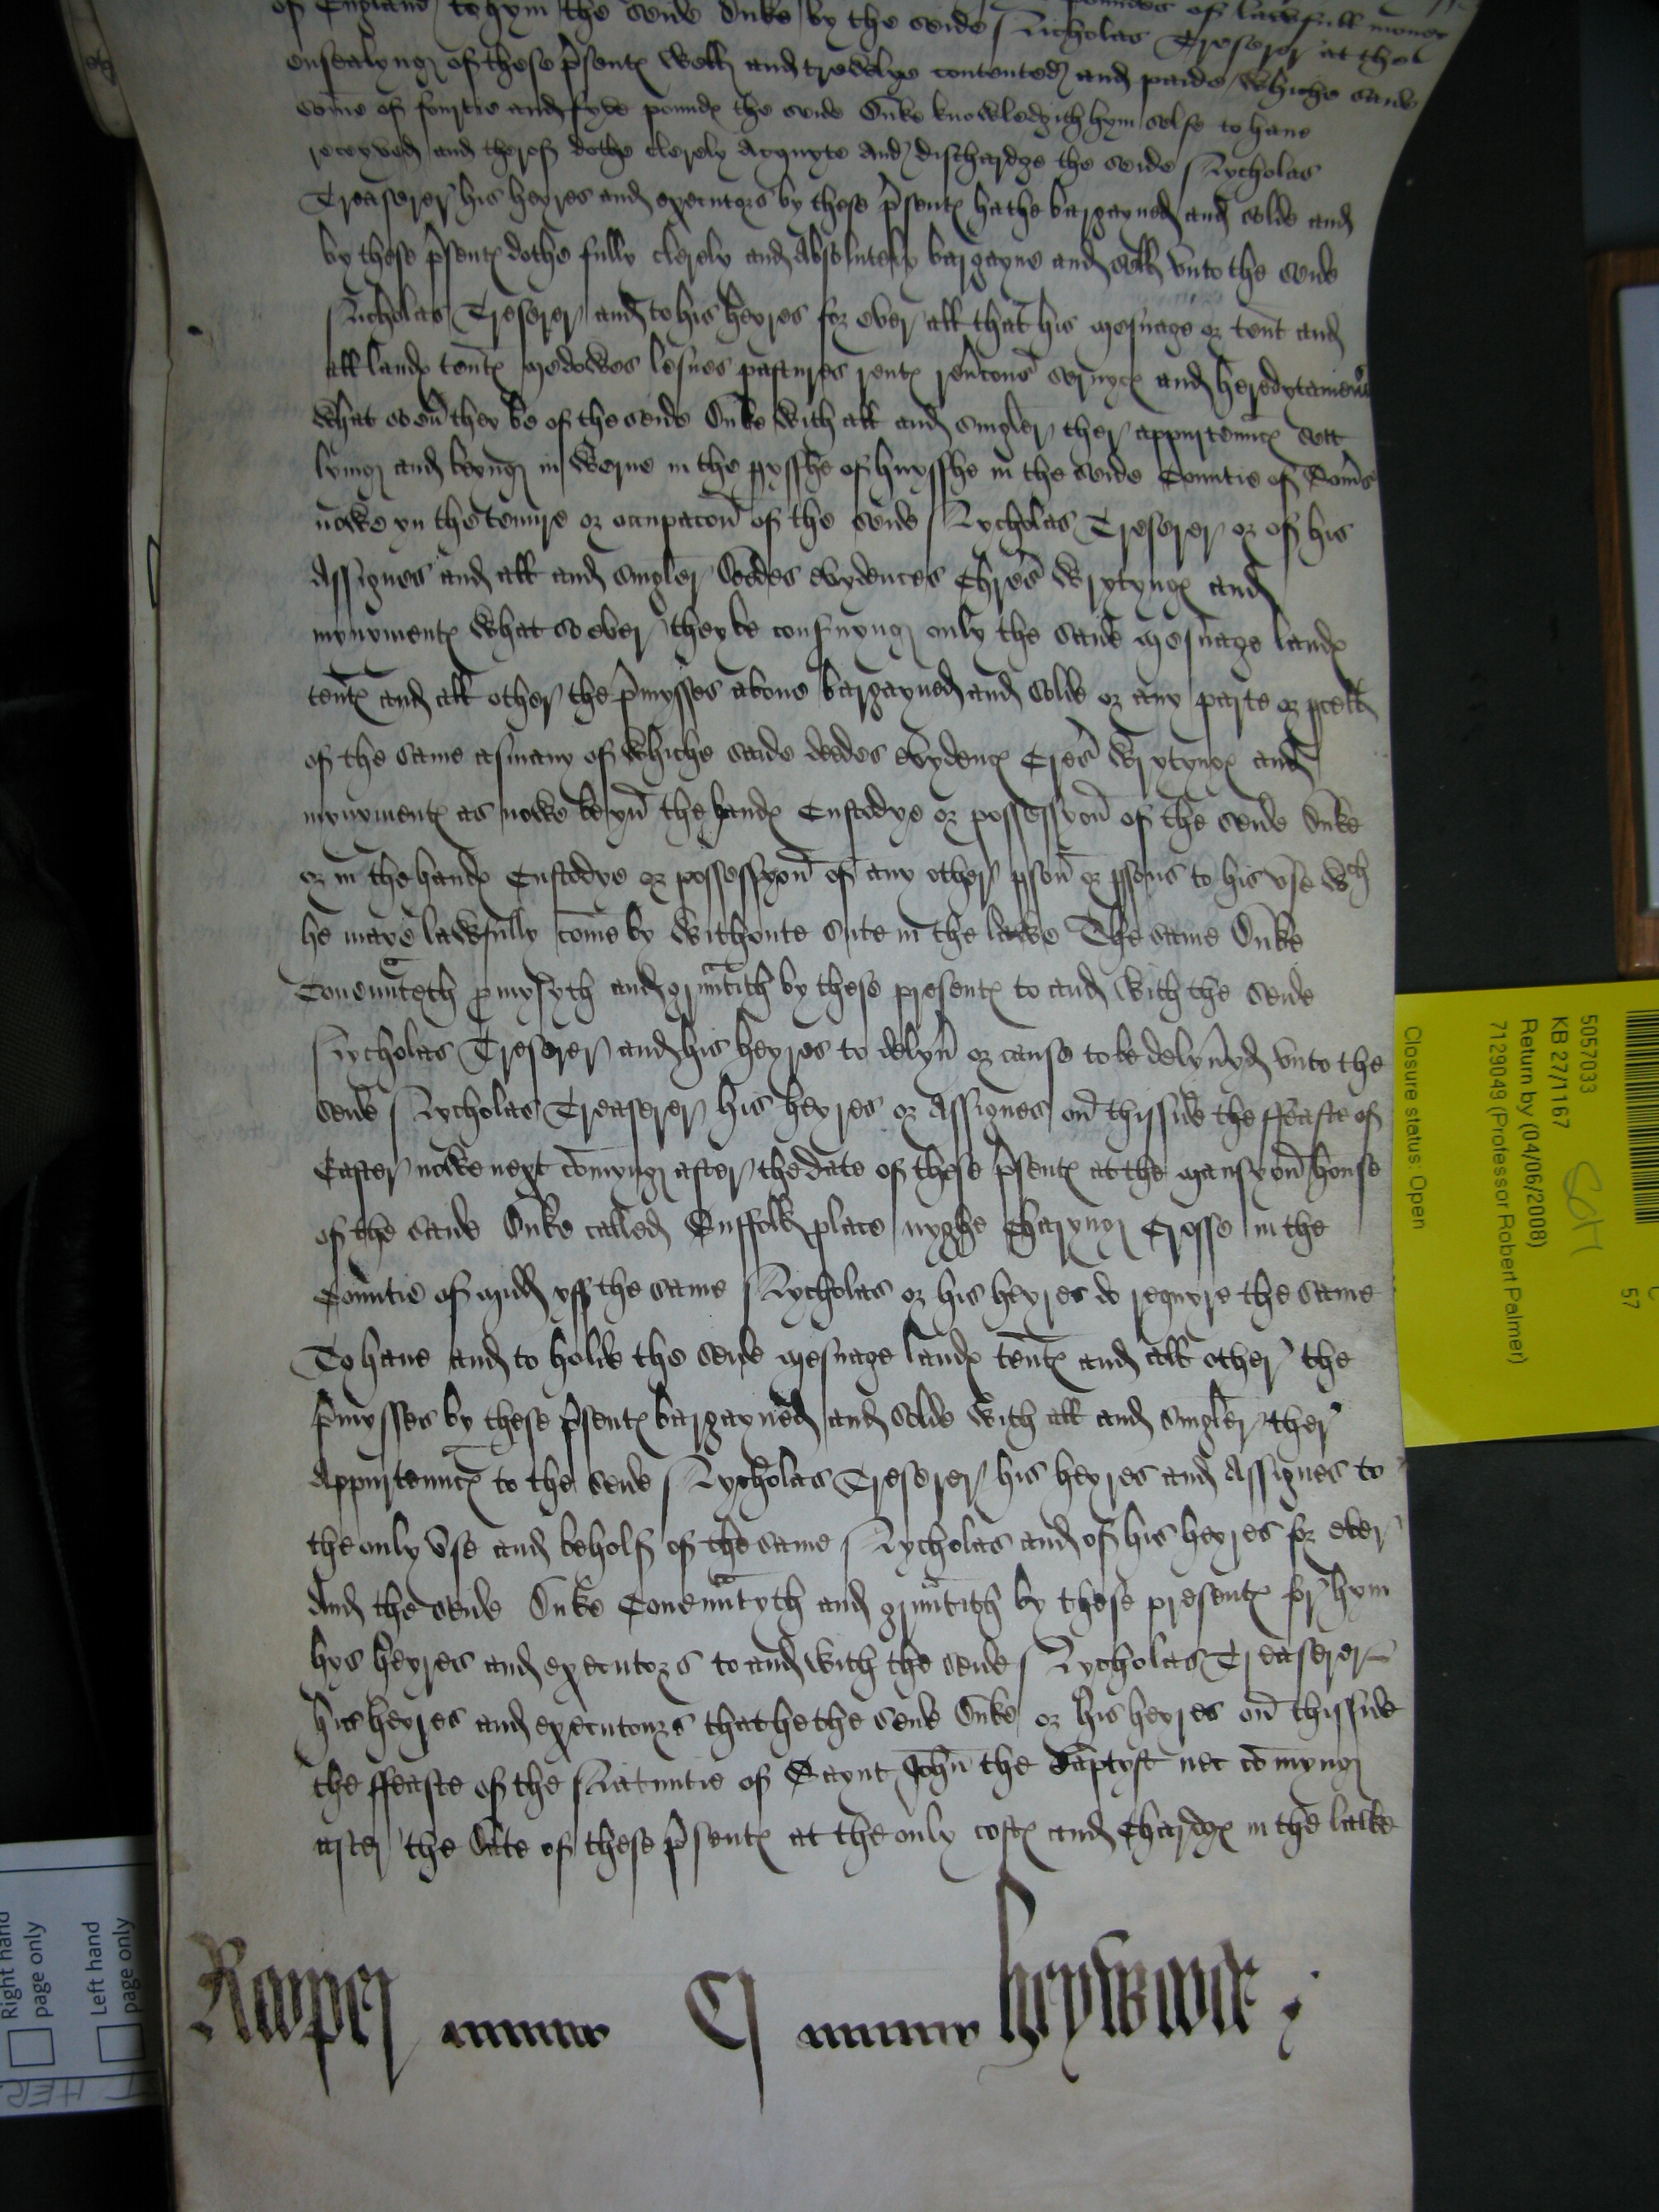 of England to hym the seide Duke by the seide Nicholas Treserer at thel
poundes of lawfull money
ensealyng of these p'sentx well and trewlye contented and paide whiche saide
some of fourtie and fyve poundx the seide Duke knowledgith hym selfe to haue
receyved and therof dothe clerely Acquyte And dischardge the seide Nycholas
Treaserer his heyres and executors by these p'sentx hathe bargayned and solde and
by these p'sentx dothe fully clerely and Absolutely bargayne and sell vnto the seide
Nicholas Treserer and to his heyres for ever all that his mesuage or tent and
all landx tentx medowes lesues pastures rentx reu'cons seruycx and heredytamentx
what soeu' they be of the seide Duke with all and singler ther appurtenncx sett
lying and beyng in Werne in the pysshe of huysshe in the seide Countie of Som's
nowe yn the tenure or occupacon of the seide Nycholas Treserer or of his
Assignes and all and singler Dedes evydences Chres wrytyngx and
mynymentx what so ever they be consernyng only the saide mesuage landx
tentx and all other the p'mysses aboue bargayned and solde or any parte or pcell
of the same asmany of whiche saide dedes evydencx Cres wrytyngx and
mynymentx as nowe be yn the handx Custodye or possessyon of the seide Duke
or in the handx Custodye or possessyon of any other pson or psons to his vse wch
he maye lawfully come by withoute sute in the lawe The same Duke
Couenuteth pmysyth and grauntith by these presentx to and with the seide
Nycholas Treserer and his heyres to delyu' or cause to be delyu'yd vnto the
seide Nycholas Treaserer his heyres or Assignes on thisside the ffeaste of
Easter nowe next comyng after the date of these p'sentx at the mansyon house
of the saide Duke called Suffolk place nyghe Charyng Crosse in the
Countie of midd yff the same Nycholas or his heyres do requyre the same
To haue and to holde the seide mesuage landx tentx and all other the
p'mysses by these p'sentx bargayned and solde with all and singler ther
Appurtenncx to the seide Nycholas Treserer his heyres and Assignes to
the only vse and behoff of the same Nycholas and of his heyres for ever
And the seide Duke Couenntyth and grauntith by these presentx for hym
hys heyres and executors to and with the seide Nycholas Treaserer
his heyres and executours that he the seide Duke or his heyres on thisside
the ffeaste of the Natiuitie of Saynt John the Baptyst nex comyng
after the Date of these p'sentx at the only costx and Chardgx in the lawe
Rooper
heywarde
5057033
KB 27/1167
Return by (04/06/2008)
7129049 (Professor Robert Palmer)
Closure status: Open
57
Right hand
page only
Left hand
page only